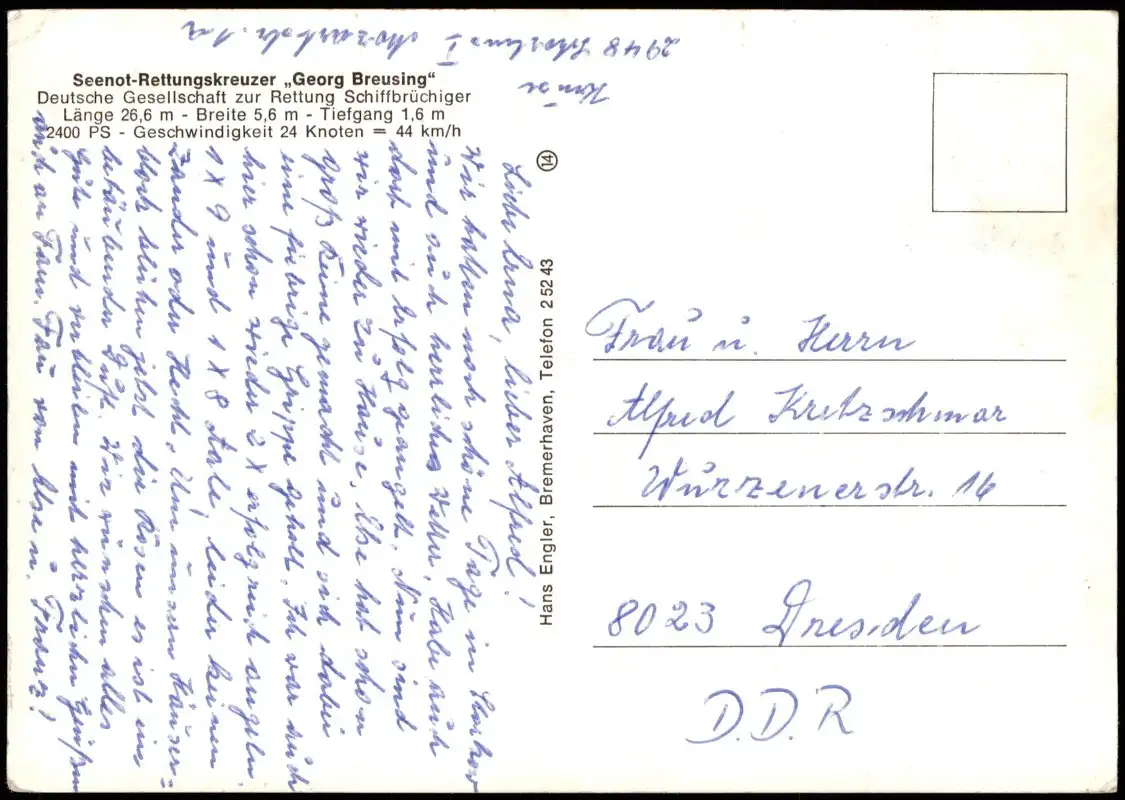 Seenot-Rettungskreuzer „Georg Breusing“
Deutsche Gesellschaft zur Rettung Schiffbrüchiger
Länge 26,6 m - Breite 5,6 m - Tiefgang 1,6 m
2400 PS - Geschwindigkeit 24 Knoten = 44 km/h
14
Hans Engler, Bremerhaven, Telefon 2 52 43
2948 I
Liebe Erna, lieber Alfred!
Wir hatten noch schöne Tage in
und auch herrliches Wetter. Habe auch
dort mit Erfolg geangelt. Nun sind
wir wieder zu Hause. Else hat schon
groß Reine gemacht und sich dabei
eine fiebrige Grippe geholt. Ich war auch
hier schon wieder 2 x erfolgreich angeln.
1 x 9 und 1 x 8 Aale, leider keinen
Zander oder Hecht. Um unsern Häuser=
block blühen jetzt die Rosen es ist ein
betäubender Duft. Wir wünschen alles
Gute und verbleiben mit herzlichen Grüßen
auch an Fam. Fau von Else u. Franz!
Frau u. Herrn
Alfred Kretzschmar
Würzenerstr. 16
8023 Dresden
D.D.R